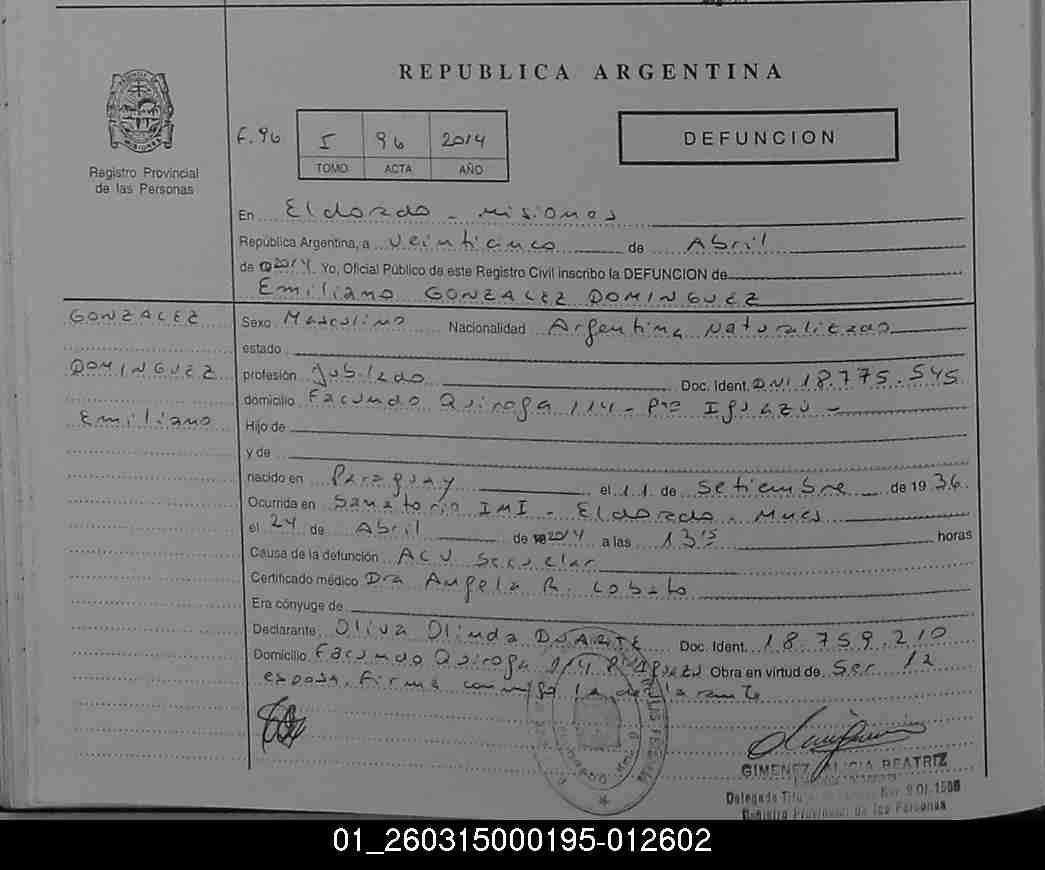 REPUBLICA ARGENTINA
F.96 I 96 2014
TOMO ACTA AÑO
DEFUNCION
Registro Provincial
de las Personas
En Eldorado - Misiones
República Argentina, a veinticinco de Abril
de 2014. Yo, Oficial Público de este Registro Civil inscribo la DEFUNCION de
Emiliano GONZALEZ DOMINGUEZ
GONZALEZ
DOMINGUEZ
Emiliano
Sexo Masculino Nacionalidad Argentina Naturalizado
estado
profesión Jubilado Doc. Ident. D.N.I 18.775.545
domicilio Facundo Quiroga 114 - Pto Iguazú -
Hijo de
y de
nacido en Paraguay el 11 de Setiembre de 1936.
Ocurrida en Sanatorio IMI - Eldorado - Mnes
el 24 de Abril de 2014 a las 13 15 horas
Causa de la defunción ACV Secuelar
Certificado médico Dra Angela R. Lobato
Era cónyuge de
Declarante Oliva Olinda DUARTE Doc. Ident. 18.759.210
Domicilio Facundo Quiroga 114 Pto Iguazú Obra en virtud de Ser la
esposa, Firma conmigo la declarante
GIMENEZ ALICIA BEATRIZ
Delegada
Registro Provincial de las Personas
01_260315000195-012602